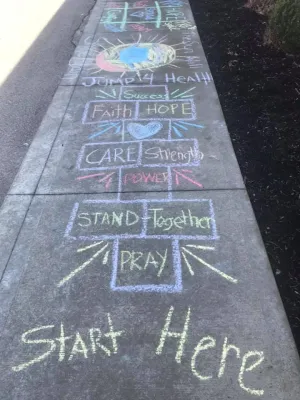 JUMP 4 HEALTH
Success
Faith HOPE
CARE Strength
POWER
STAND Together
PRAY
START Here